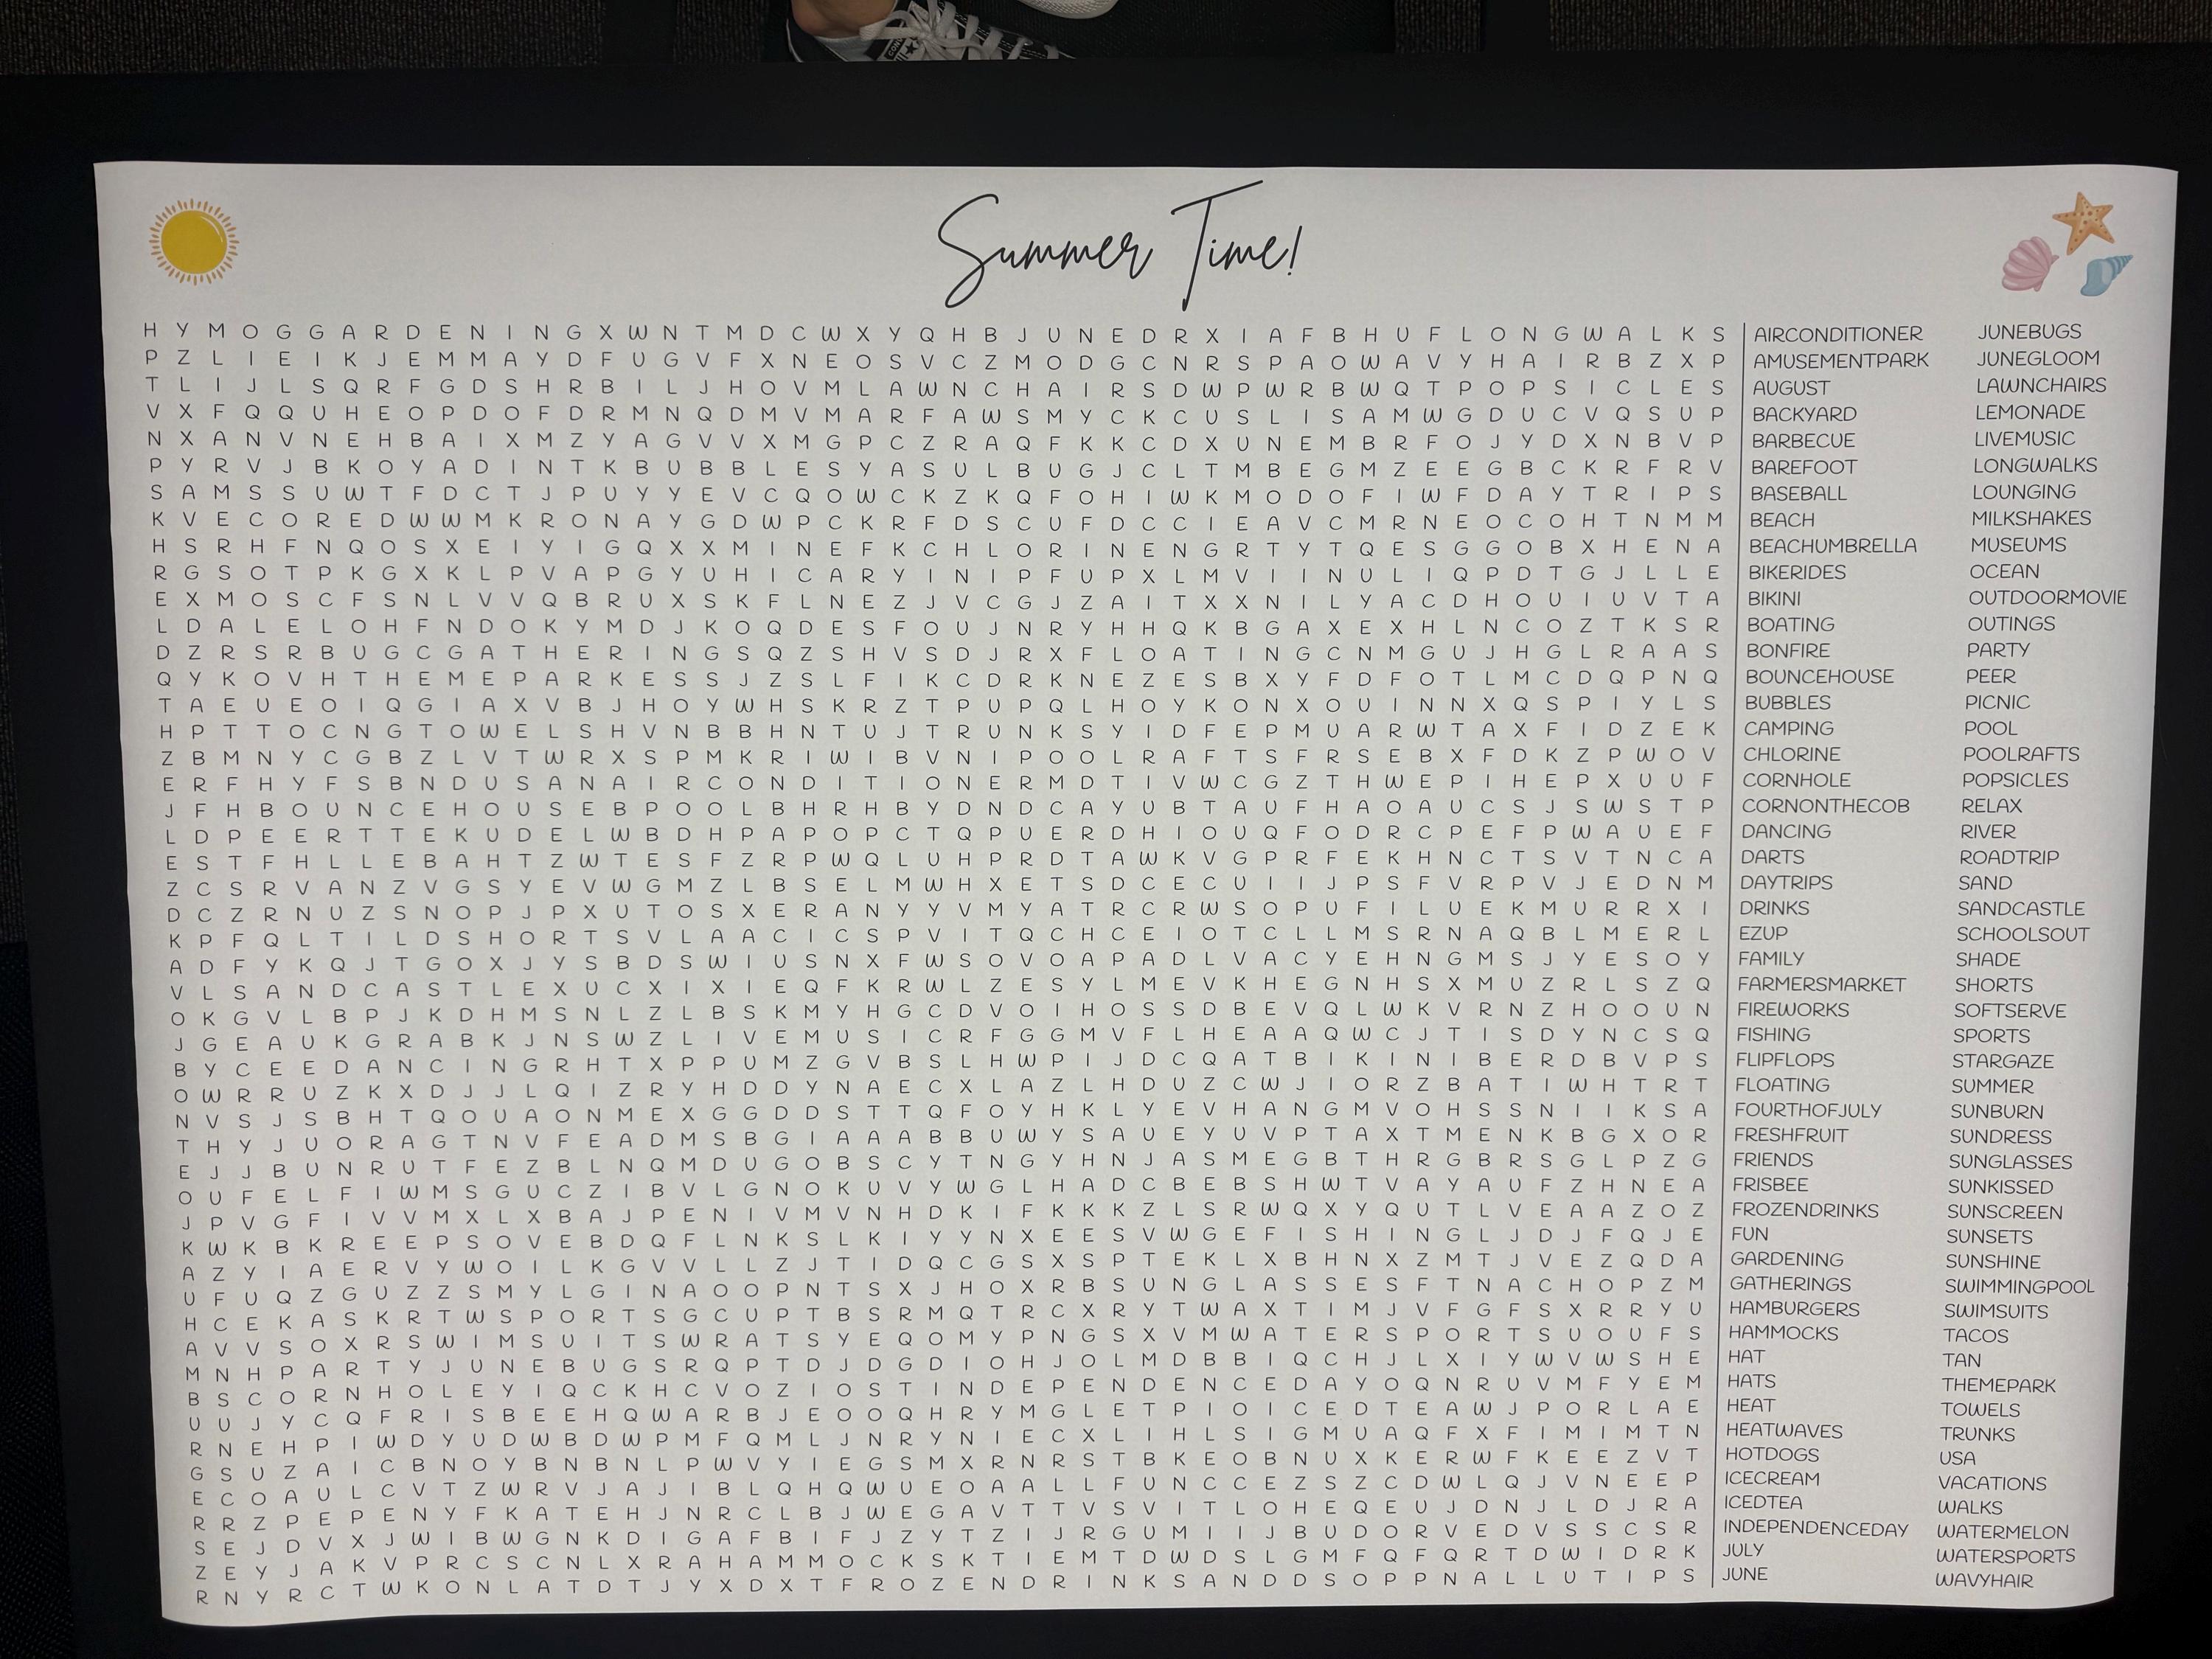 Summer Time!
H Y M O G G A R D E N I N G X W N T M D C W X Y Q H B J U N E D R X I A F B H U F L O N G W A L K S
P Z L I E I K J E M M A Y D F U G V F X N E O S V C Z M O D G C N R S P A O W A V Y H A I R B Z X P
T L I J L S Q R F G D S H R B I L J H O V M L A W N C H A I R S D W P W R B W Q T P O P S I C L E S
V X F Q Q U H E O P D O F D R M N Q D M V M A R F A W S M Y C K C U S L I S A M W G D U C V Q S U P
N X A N V N E H B A I X M Z Y A G V V X M G P C Z R A Q F K K C D X U N E M B R F O J Y D X N B V P
P Y R V J B K O Y A D I N T K B U B B L E S Y A S U L B U G J C L T M B E G M Z E E G B C K R F R V
S A M S S U W T F D C T J P U Y Y E V C Q O W C K Z K Q F O H I W K M O D O F I W F D A Y T R I P S
K V E C O R E D W W M K R O N A Y G D W P C K R F D S C U F D C C I E A V C M R N E O C O H T N M M
H S R H F N Q O S X E I Y I G Q X X M I N E F K C H L O R I N E N G R T Y T Q E S G G O B X H E N A
R G S O T P K G X K L P V A P G Y U H I C A R Y I N I P F U P X L M V I I N U L I Q P D T G J L L E
E X M O S C F S N L V V Q B R U X S K F L N E Z J V C G J Z A I T X X N I L Y A C D H O U I U V T A
L D A L E L O H F N D O K Y M D J K O Q D E S F O U J N R Y H H Q K B G A X E X H L N C O Z T K S R
D Z R S R B U G C G A T H E R I N G S Q Z S H V S D J R X F L O A T I N G C N M G U J H G L R A A S
Q Y K O V H T H E M E P A R K E S S J Z S L F I K C D R K N E Z E S B X Y F D F O T L M C D Q P N Q
T A E U E O I Q G I A X V B J H O Y W H S K R Z T P U P Q L H O Y K O N X O U I N N X Q S P I Y L S
H P T T O C N G T O W E L S H V N B B H N T U J T R U N K S Y I D F E P M U A R W T A X F I D Z E K
Z B M N Y C G B Z L V T W R X S P M K R I W I B V N I P O O L R A F T S F R S E B X F D K Z P W O V
E R F H Y F S B N D U S A N A I R C O N D I T I O N E R M D T I V W C G Z T H W E P I H E P X U U F
J F H B O U N C E H O U S E B P O O L B H R H B Y D N D C A Y U B T A U F H A O A U C S J S W S T P
L D P E E R T T E K U D E L W B D H P A P O P C T Q P U E R D H I O U Q F O D R C P E F P W A U E F
E S T F H L L E B A H T Z W T E S F Z R P W Q L U H P R D T A W K V G P R F E K H N C T S V T N C A
Z C S R V A N Z V G S Y E V W G M Z L B S E L M W H X E T S D C E C U I I J P S F V R P V J E D N M
D C Z R N U Z S N O P J P X U T O S X E R A N Y Y V M Y A T R C R W S O P U F I L U E K M U R R X I
K P F Q L T I L D S H O R T S V L A A C I C S P V I T Q C H C E I O T C L L M S R N A Q B L M E R L
A D F Y K Q J T G O X J Y S B D S W I U S N X F W S O V O A P A D L V A C Y E H N G M S J Y E S O Y
V L S A N D C A S T L E X U C X I X I E Q F K R W L Z E S Y L M E V K H E G N H S X M U Z R L S Z Q
O K G V L B P J K D H M S N L Z L B S K M Y H G C D V O I H O S S D B E V Q L W K V R N Z H O O U N
J G E A U K G R A B K J N S W Z L I V E M U S I C R F G G M V F L H E A A Q W C J T I S D Y N C S Q
B Y C E E D A N C I N G R H T X P P U M Z G V B S L H W P I J D C Q A T B I K I N I B E R D B V P S
O W R R U Z K X D J J L Q I Z R Y H D D Y N A E C X L A Z L H D U Z C W J I O R Z B A T I W H T R T
N V S J S B H T Q O U A O N M E X G G D D S T T Q F O Y H K L Y E V H A N G M V O H S S N I I K S A
T H Y J U O R A G T N V F E A D M S B G I A A A B B U W Y S A U E Y U V P T A X T M E N K B G X O R
E J J B U N R U T F E Z B L N Q M D U G O B S C Y T N G Y H N J A S M E G B T H R G B R S G L P Z G
O U F E L F I W M S G U C Z I B V L G N O K U V Y W G L H A D C B E B S H W T V A Y A U F Z H N E A
J P V G F I V V M X L X B A J P E N I V M V N H D K I F K K K Z L S R W Q X Y Q U T L V E A A Z O Z
K W K B K R E E P S O V E B D Q F L N K S L K I Y Y N X E E S V W G E F I S H I N G L J D J F Q J E
A Z Y I A E R V Y W O I L K G V V L L Z J T I D Q C G S X S P T E K L X B H N X Z M T J V E Z Q D A
U F U Q Z G U Z Z S M Y L G I N A O O P N T S X J H O X R B S U N G L A S S E S F T N A C H O P Z M
H C E K A S K R T W S P O R T S G C U P T B S R M Q T R C X R Y T W A X T I M J V F G F S X R R Y U
A V V S O X R S W I M S U I T S W R A T S Y E Q O M Y P N G S X V M W A T E R S P O R T S U O U F S
M N H P A R T Y J U N E B U G S R Q P T D J D G D I O H J O L M D B B I Q C H J L X I Y W V W S H E
B S C O R N H O L E Y I Q C K H C V O Z I O S T I N D E P E N D E N C E D A Y O Q N R U V M F Y E M
U U J Y C Q F R I S B E E H Q W A R B J E O O Q H R Y M G L E T P I O I C E D T E A W J P O R L A E
R N E H P I W D Y U D W B D W P M F Q M L J N R Y N I E C X L I H L S I G M U A Q F X F I M I M T N
G S U Z A I C B N O Y B N B N L P W V Y I E G S M X R N R S T B K E O B N U X K E R W F K E E Z V T
E C O A U L C V T Z W R V J A J I B L Q H Q W U E O A A L L F U N C C E Z S Z C D W L Q J V N E E P
R R Z P E P E N Y F K A T E H J N R C L B J W E G A V T T V S V I T L O H E Q E U J D N J L D J R A
S E J D V X J W I B W G N K D I G A F B I F J Z Y T Z I J R G U M I I J B U D O R V E D V S S C S R
Z E Y J A K V P R C S C N L X R A H A M M O C K S K T I E M T D W D S L G M F Q F Q R T D W I D R K
R N Y R C T W K O N L A T D T J Y X D X T F R O Z E N D R I N K S A N D D S O P P N A L L U T I P S
AIRCONDITIONER
AMUSEMENTPARK
AUGUST
BACKYARD
BARBECUE
BAREFOOT
BASEBALL
BEACH
BEACHUMBRELLA
BIKERIDES
BIKINI
BOATING
BONFIRE
BOUNCEHOUSE
BUBBLES
CAMPING
CHLORINE
CORNHOLE
CORNONTHECOB
DANCING
DARTS
DAYTRIPS
DRINKS
EZUP
FAMILY
FARMERSMARKET
FIREWORKS
FISHING
FLIPFLOPS
FLOATING
FOURTHOFJULY
FRESHFRUIT
FRIENDS
FRISBEE
FROZENDRINKS
FUN
GARDENING
GATHERINGS
HAMBURGERS
HAMMOCKS
HAT
HATS
HEAT
HEATWAVES
HOTDOGS
ICECREAM
ICEDTEA
INDEPENDENCEDAY
JULY
JUNE
JUNEBUGS
JUNEGLOOM
LAWNCHAIRS
LEMONADE
LIVEMUSIC
LONGWALKS
LOUNGING
MILKSHAKES
MUSEUMS
OCEAN
OUTDOORMOVIE
OUTINGS
PARTY
PEER
PICNIC
POOL
POOLRAFTS
POPSICLES
RELAX
RIVER
ROADTRIP
SAND
SANDCASTLE
SCHOOLSOUT
SHADE
SHORTS
SOFTSERVE
SPORTS
STARGAZE
SUMMER
SUNBURN
SUNDRESS
SUNGLASSES
SUNKISSED
SUNSCREEN
SUNSETS
SUNSHINE
SWIMMINGPOOL
SWIMSUITS
TACOS
TAN
THEMEPARK
TOWELS
TRUNKS
USA
VACATIONS
WALKS
WATERMELON
WATERSPORTS
WAVYHAIR